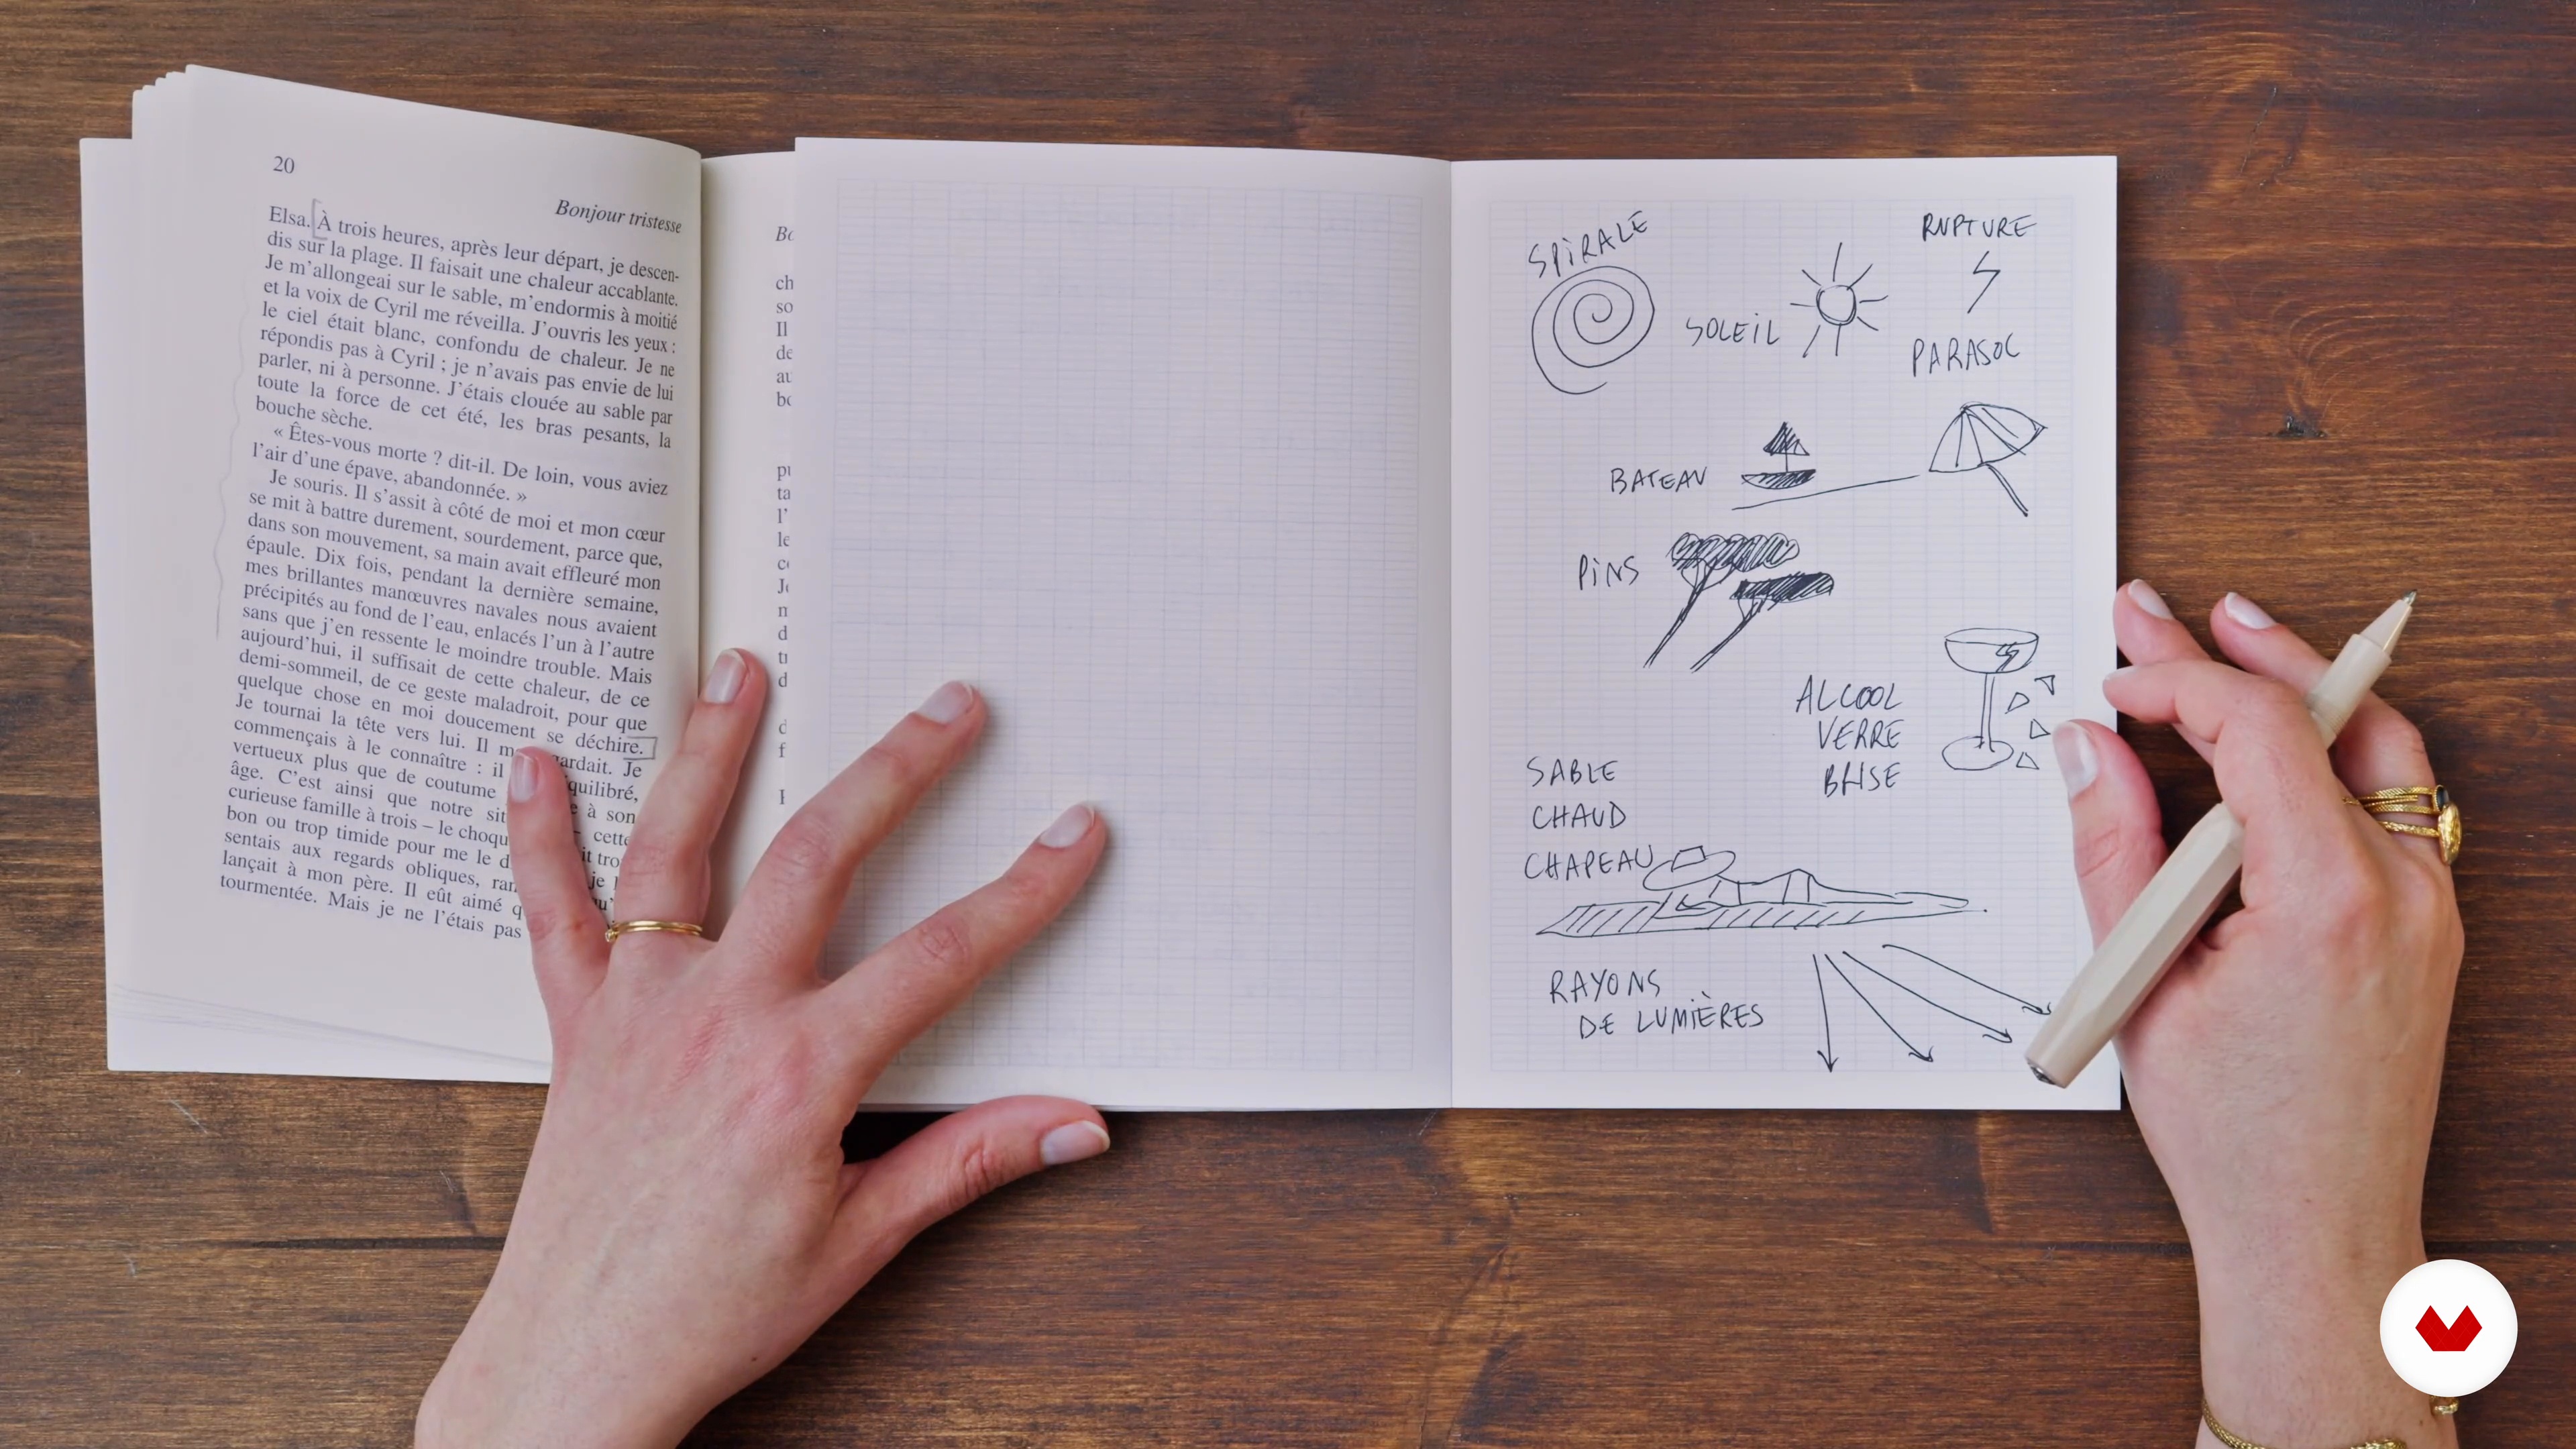 20
Bonjour tristesse
Elsa. À trois heures, après leur départ, je descen-
dis sur la plage. Il faisait une chaleur accablante.
Je m'allongeai sur le sable, m'endormis à moitié
et la voix de Cyril me réveilla. J'ouvris les yeux :
le ciel était blanc, confondu de chaleur. Je ne
répondis pas à Cyril ; je n'avais pas envie de lui
parler, ni à personne. J'étais clouée au sable par
toute la force de cet été, les bras pesants, la
bouche sèche.
« Êtes-vous morte ? dit-il. De loin, vous aviez
l'air d'une épave, abandonnée. »
Je souris. Il s'assit à côté de moi et mon cœur
se mit à battre durement, sourdement, parce que,
dans son mouvement, sa main avait effleuré mon
épaule. Dix fois, pendant la dernière semaine,
mes brillantes manœuvres navales nous avaient
précipités au fond de l'eau, enlacés l'un à l'autre
sans que j'en ressente le moindre trouble. Mais
aujourd'hui, il suffisait de cette chaleur, de ce
demi-sommeil, de ce geste maladroit, pour que
quelque chose en moi doucement se déchire.
Je tournai la tête vers lui. Il Je
commençais à le connaître : il
vertueux plus que de coutume à son
âge. C'est ainsi que notre cette
curieuse famille à trois –
bon ou trop timide pour me le je
sentais aux regards obliques,
lançait à mon père. Il eût aimé
tourmentée. Mais je ne l'étais pas
ch
so
Il
de
au
bo
pu
ta
l'
le
d
d
f
SPIRALE
RUPTURE
SOLEIL
PARASOL
BATEAU
PINS
ALCOOL
VERRE
BRISE
SABLE
CHAUD
CHAPEAU
RAYONS
DE LUMIÈRES